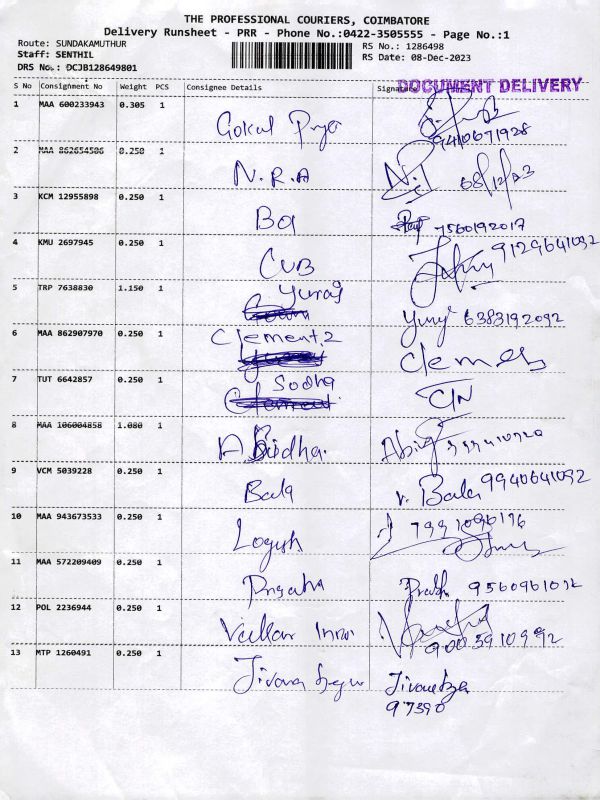 THE PROFESSIONAL COURIERS, COIMBATORE
Delivery Runsheet - PRR - Phone No.:0422-3505555 - Page No.:1
Route: SUNDAKAMUTHUR RS No.: 1286498
Staff: SENTHIL RS Date: 08-Dec-2023
DRS No.: DCJB128649801
DOCUMENT DELIVERY
S No Consignment No Weight PCS Consignee Details Signature
1 MAA 600233943 0.305 1
Gokul 9410671928
2 MAA 862654506 0.250 1
N.R.A 08/12/23
3 KCM 12955898 0.250 1
BOI 7560192017
4 KMU 2697945 0.250 1
CUB 9129641092
5 TRP 7638830 1.150 1
Yuvraj 6383192092
6 MAA 862907970 0.250 1
Clement.2 Clement
7 TUT 6642857 0.250 1
Sudha
8 MAA 106004858 1.080 1
9 VCM 5039228 0.250 1
Bala v. Bala 9940641092
10 MAA 943673533 0.250 1
Logesh
11 MAA 572209409 0.250 1
12 POL 2236944 0.250 1
9003910992
13 MTP 1260491 0.250 1
Jivana
97390